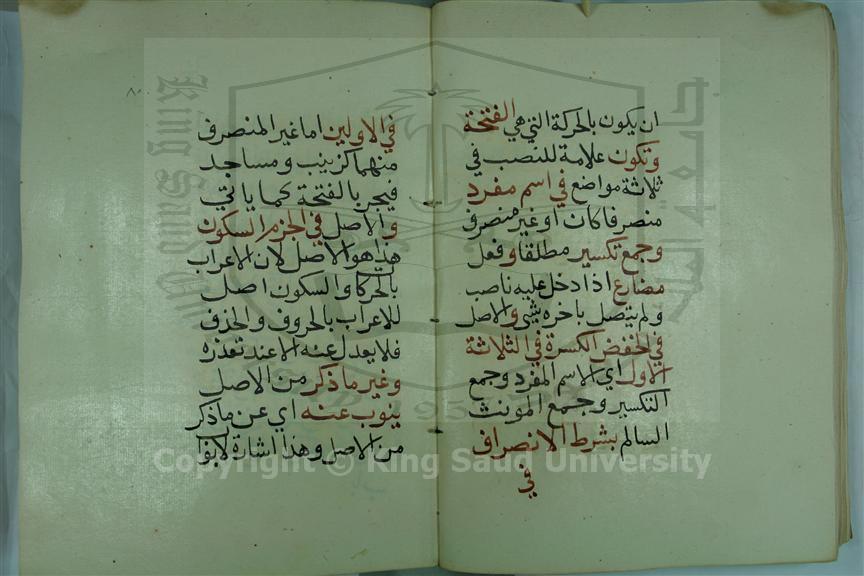 ان يكون بالحركة التي هي الفتحة
وتكون علامة للنصب في
ثلاثة مواضع في اسم مفرد
منصرفا كان او غير منصرف
وجمع تكسير مطلقا وفعل
مضارع اذا دخل عليه ناصب
ولم يتصل باخره شيى والاصل
في الخفض الكسرة في الثلاثة
الاول اي الاسم المفرد وجمع
التكسير وجمع المونث
السالم بشرط الانصراف
في
٨٠
في الاولين اما غير المنصرف
منهما كزينب ومساجد
فيجر بالفتحة كما ياتي
والاصل في الجزم السكون
هذا هو الاصل لان الاعراب
بالحركا والسكون اصل
للاعراب بالحروف والحذف
فلا يعدل عنه الا عند تعذره
وغير ما ذكر من الاصل
ينوب عنه اي عن ما ذكر
من الاصل وهذا اشارة
King Saud University
جامعة الملك
1957
Copyright © King Saud University